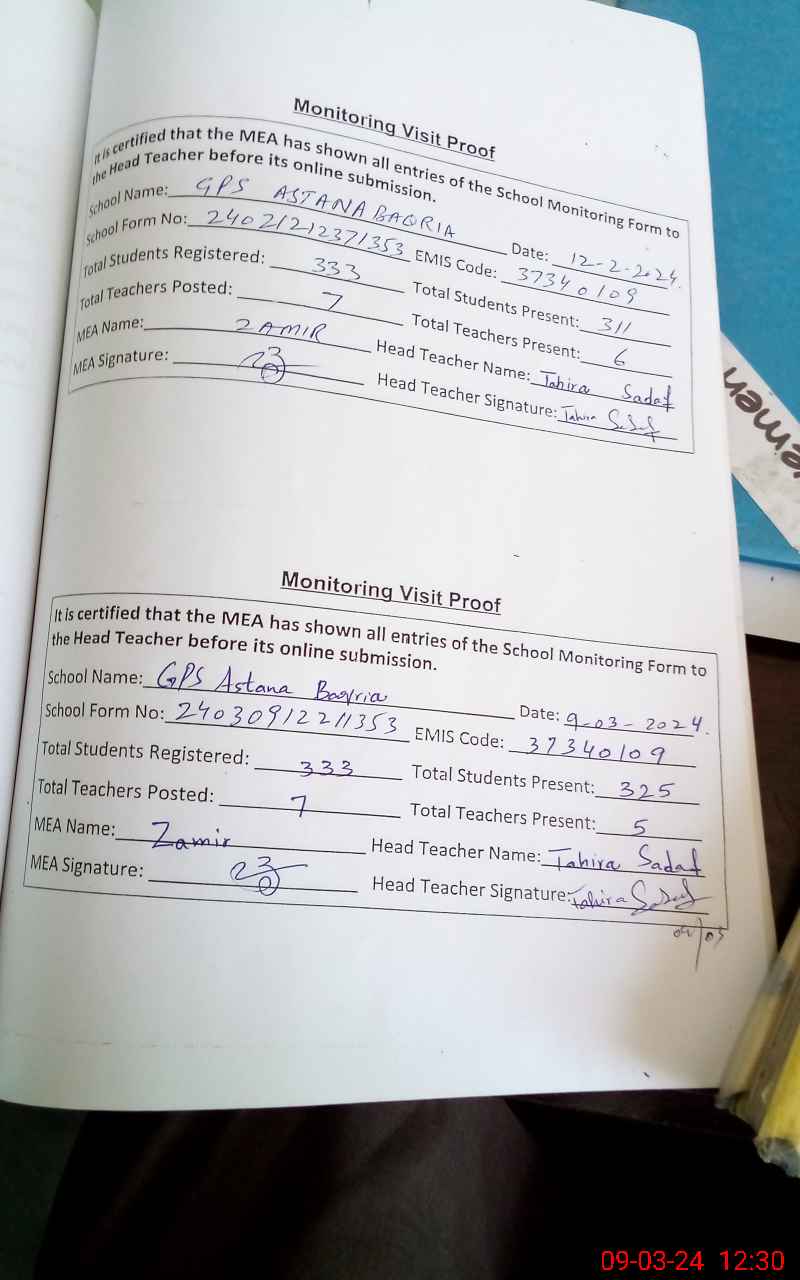 Monitoring Visit Proof
It is certified that the MEA has shown all entries of the School Monitoring Form to
the Head Teacher before its online submission.
School Name: GPS ASTANA BAQRIA Date: 12-2-2024.
School Form No: 24021212371353 EMIS Code: 37340109
Total Students Registered: 333 Total Students Present: 311
Total Teachers Posted: 7 Total Teachers Present: 6
MEA Name: ZAMIR Head Teacher Name: Tahira Sadaf
MEA Signature: Head Teacher Signature: Tahira Sadaf
Monitoring Visit Proof
It is certified that the MEA has shown all entries of the School Monitoring Form to
the Head Teacher before its online submission.
School Name: GPS Astana Baqria Date: 9-03-2024.
School Form No: 24030912211353 EMIS Code: 37340109
Total Students Registered: 333 Total Students Present: 325
Total Teachers Posted: 7 Total Teachers Present: 5
MEA Name: Zamir Head Teacher Name: Tahira Sadaf
MEA Signature: Head Teacher Signature: Tahira Sadaf
09-03-24 12:30